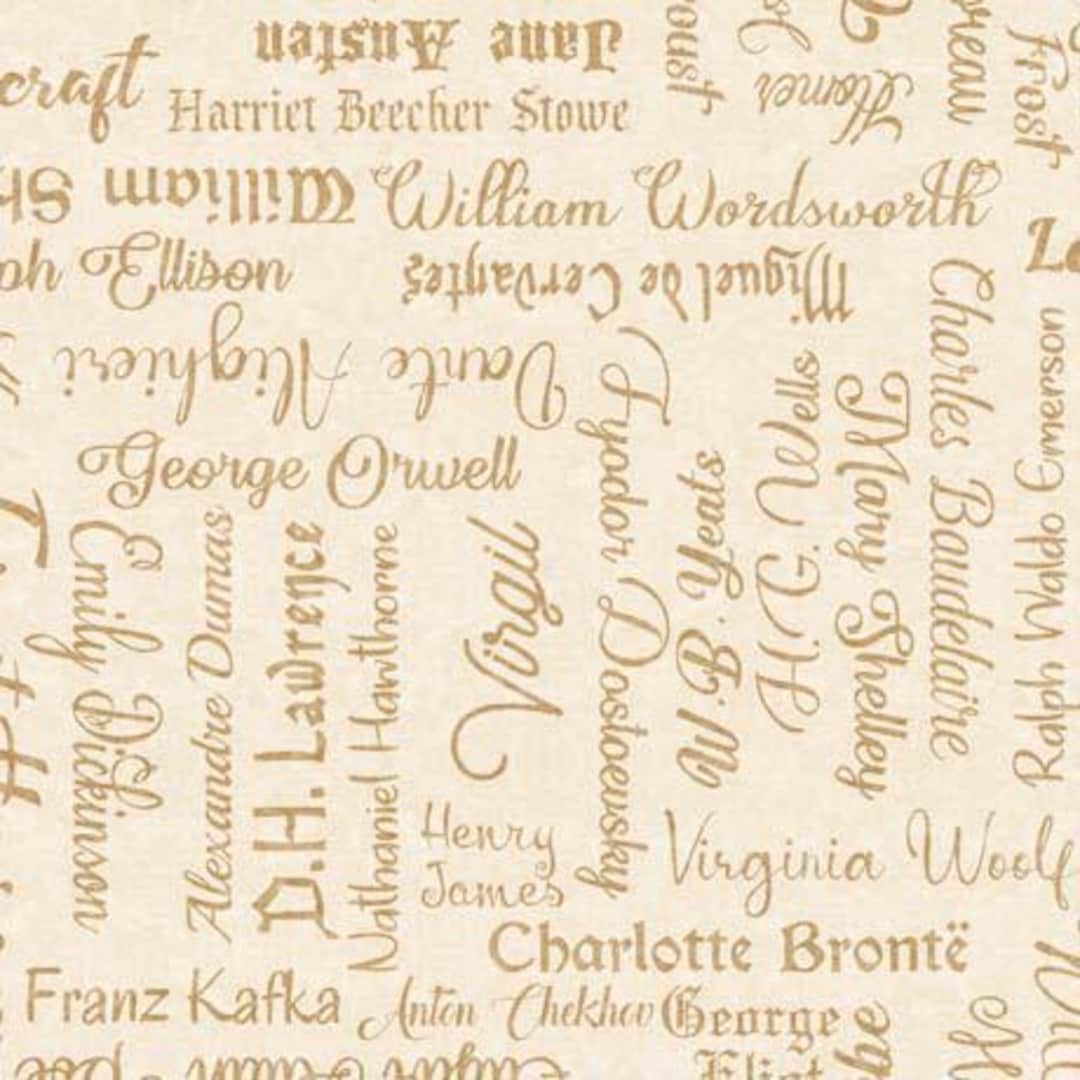 Jane Austen
craft
Harriet Beecher Stowe
Homer
Frost
William
William Wordsworth
Ellison
Miguel de Cervantes
Dante Alighieri
George Orwell
Fyodor Dostoevsky
W. B. Yeats
H. G. Wells
Mary Shelley
Charles Baudelaire
Ralph Waldo Emerson
Emily Dickinson
Alexandre Dumas
D.H. Lawrence
Nathaniel Hawthorne
Virgil
Henry
James
Virginia Woolf
Charlotte Brontë
Franz Kafka
Anton Chekhov
George
Eliot